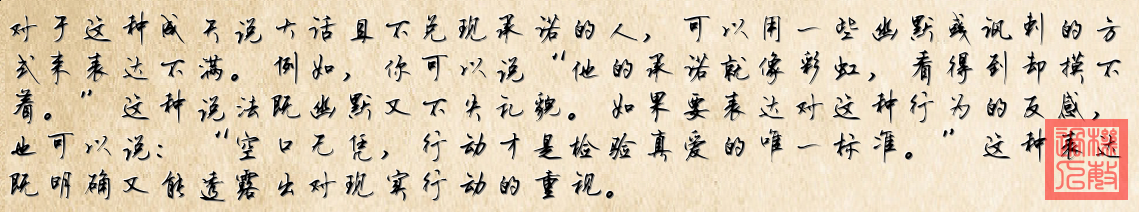 对于这种成天说大话且不兑现承诺的人，可以用一些幽默或讽刺的方
式来表达不满。例如，你可以说“他的承诺就像彩虹，看得到却摸不
着。”这种说法既幽默又不失礼貌。如果要表达对这种行为的反感，
也可以说：“空口无凭，行动才是检验真爱的唯一标准。”这种表达
既明确又能透露出对现实行动的重视。